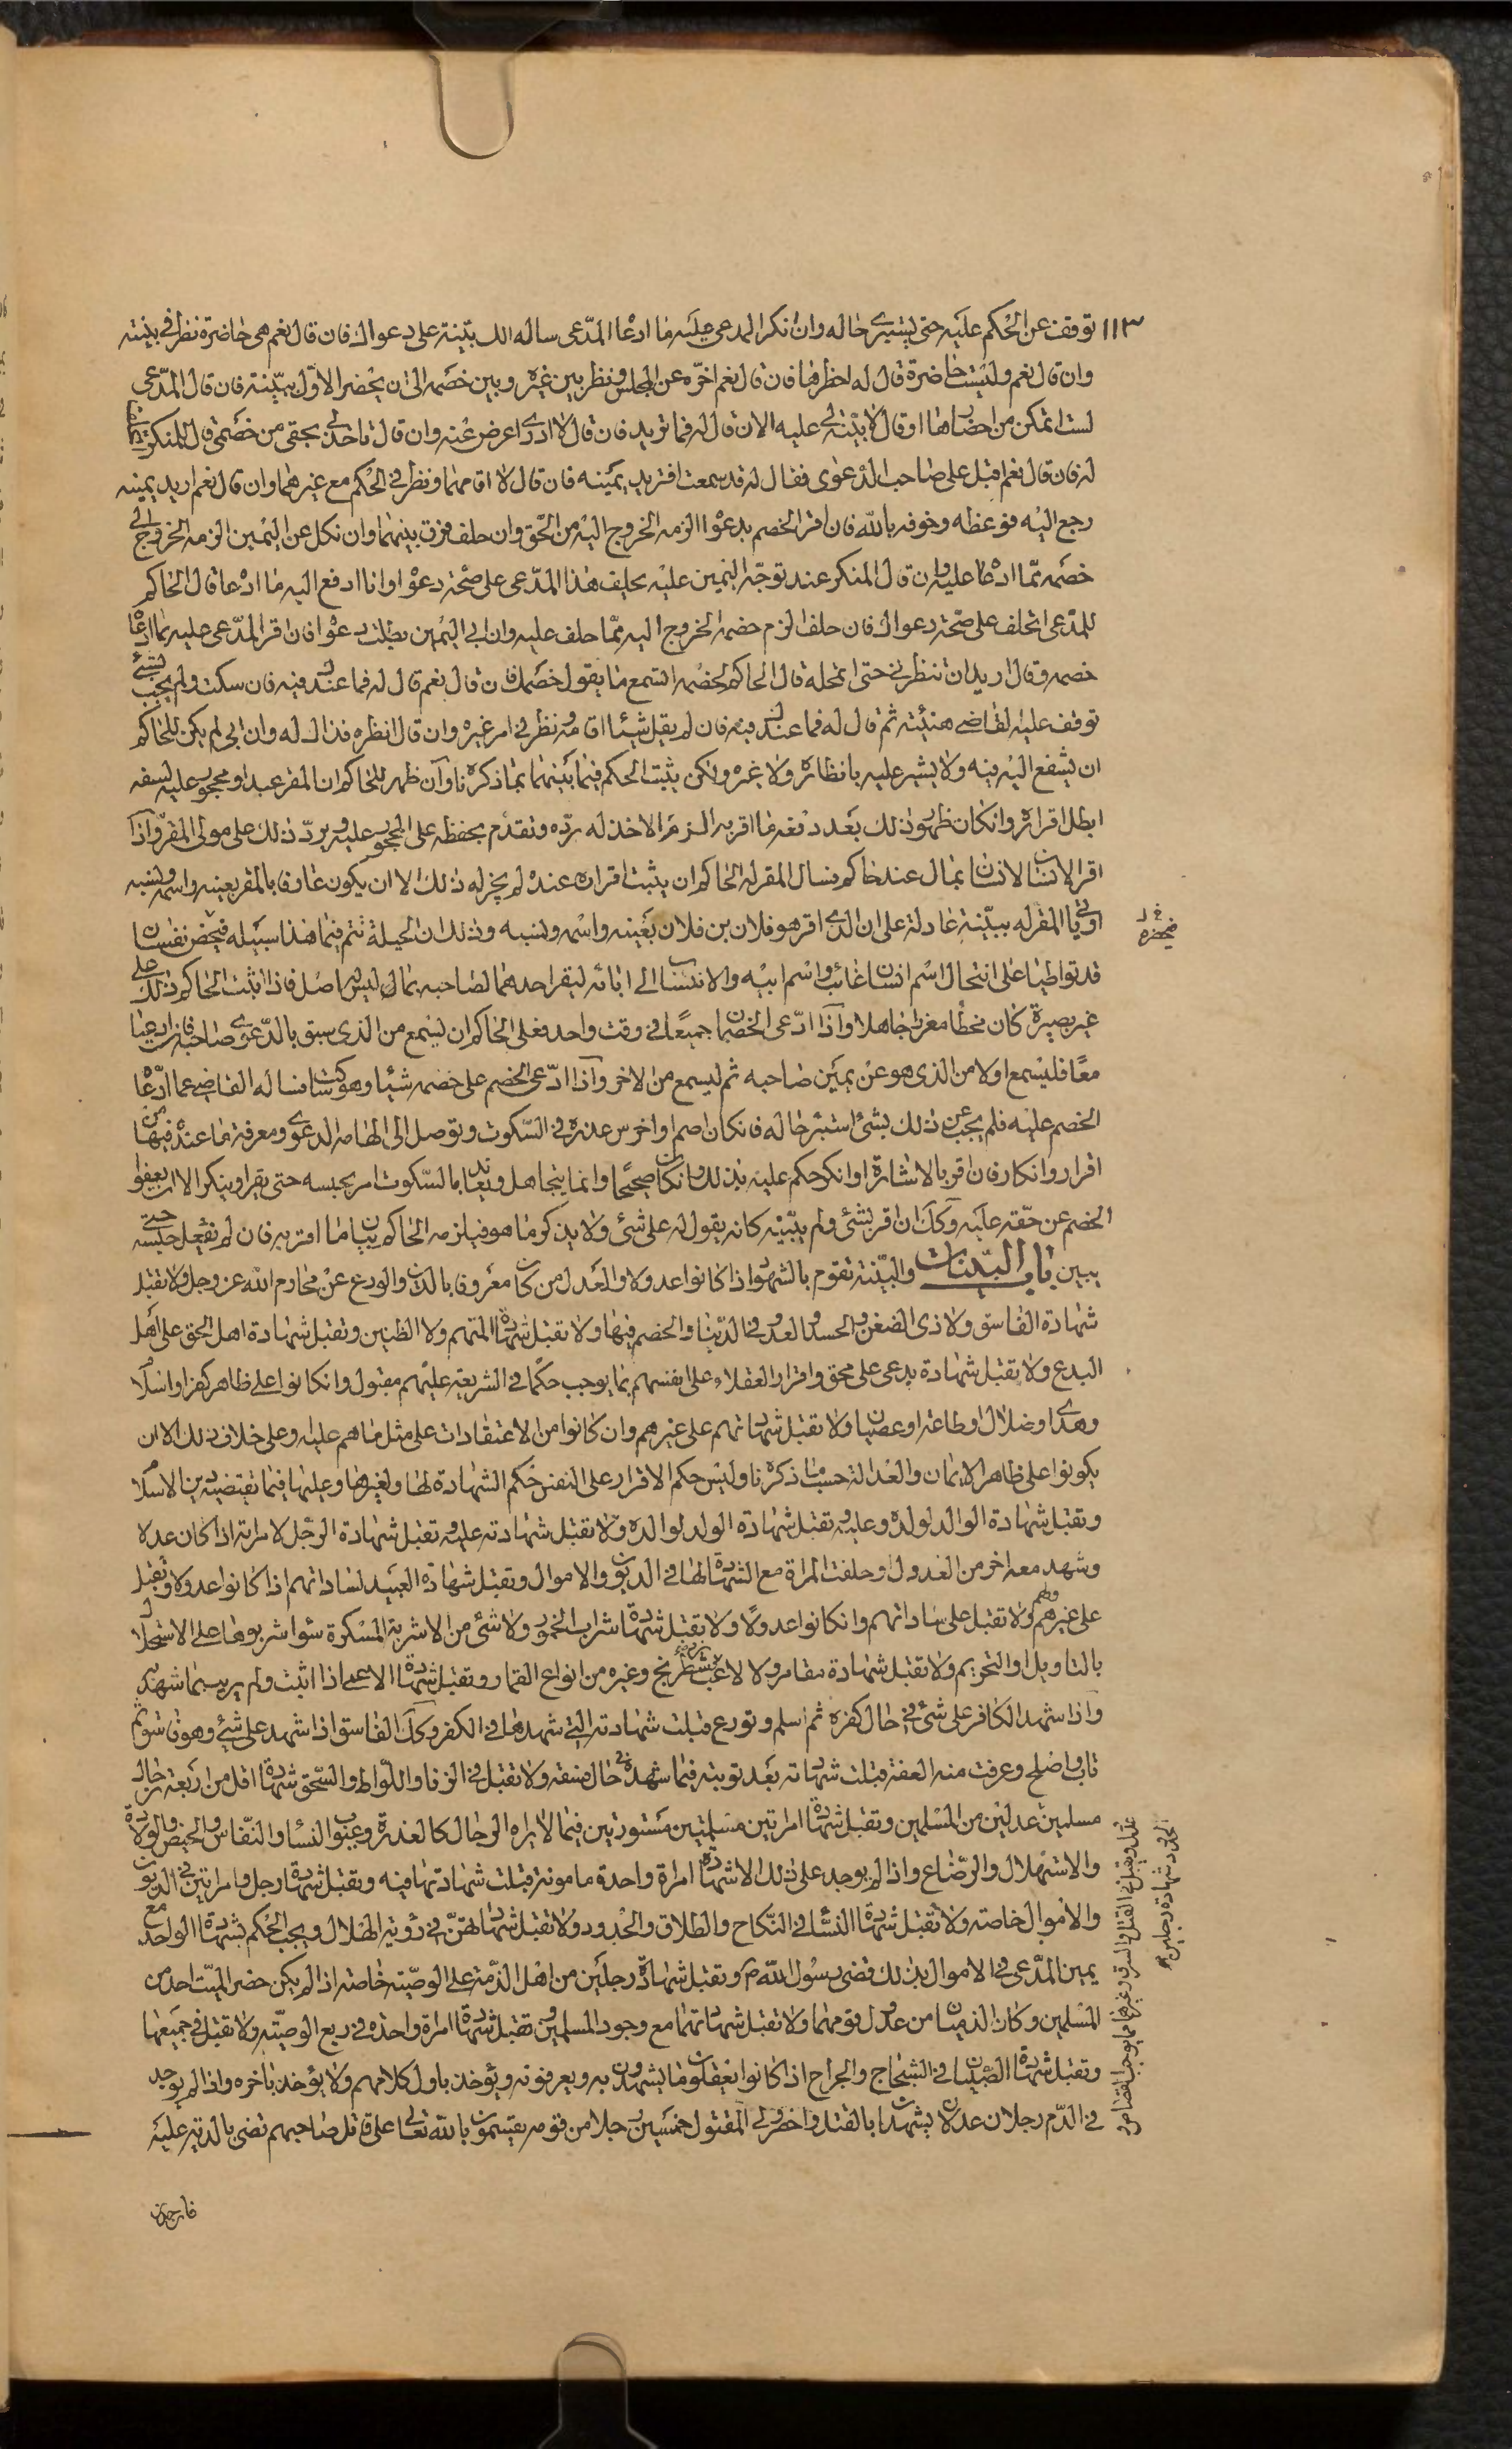 ١١٣ توقف عن الحكم عليه حتى يستبرى حاله وان انكر المدعى عليه ما ادعاه المدّعى ساله الك بيّنة على دعواك فان قال نعم هى حاضرة نظر فى بينته
وان قال نعم وليست حاضرة قال له احظرها فان قال نعم اخّره عن المجلس ونظر بين غيره وبين خصمه الى ان يحضر الاوّل ببيّنة فان قال المدّعى
لست اتمكن من احضارها او قال لا بيّنة لى عليه الان قال له فما تريد فان قال لا ادرى اعرض عنه وان قال تاخذ لى بحقى من خصمى قال للمنكر
له فان قال نعم اقبل على صاحب الدعوى فقال له قد سمعت افتريد يمينه فان قال لا اقامهما ونظر فى الحكم مع غيرهما وان قال نعم اريد يمينه
رجع اليه فوعظه وخوفه بالله فان اقر الخصم بدعواه الزمه الخروج اليه من الحق وان حلف فرق بينهما وان نكل عن اليمين الزمه الخروج الى
خصمه ممّا ادعاه عليه وان قال المنكر عند توجّه اليمين عليه يحلف هذا المدّعى على صحة دعواه وانا ادفع اليه ما ادعاه قال الحاكم
للمدّعى اتحلف على صحّة دعواك فان حلف الزم خصمه الخروج اليه ممّا حلف عليه وان ابى اليمين بطلت دعواه فان اقر المدّعى عليه بما ادعاه
خصمه وقال اريد ان تنظرنى حتى اتمحله قال الحاكم لخصمه اتسمع ما يقول خصمك فان قال نعم قال له فما عندك فيه فان سكت ولم يجب بشئ
توقف عليه القاضى هنيئة ثم قال له فما عندك فيه فان لم يقل شيئا اقامه ونظر فى امر غيره وان قال انظره فذاك له وان ابى لم يكن للحاكم
ان يشفع اليه فيه ولا يشير عليه بانظاره ولا غيره ولكن يثبت الحكم فيما بينهما بما ذكرناه وان ظهر للحاكم ان المقر عبد او محجور عليه لسفه
ابطل اقراره وان كان ظهور ذلك بعد دفعه ما اقر به الزم الاخذ له ردّه وتقدم بحفظه على المحجور عليه ويردّ ذلك على مولى المقر واذا
اقر الانسان لانسان بمال عند حاكم فسال المقر له الحاكم ان يثبت اقراره عنده لم يجز له ذلك الا ان يكون عارفا بالمقر بعينه واسمه ونسبه
او ياتى المقر له ببيّنة عادلة على ان الذى اقر هو فلان بن فلان بعينه واسمه ونسبه وذلك ان الحيلة تتم فيما هذا سبيله فيحضر نفسان
قد تواطيا على انتحال اسم انسان غائب واسم ابيه والانتساب الى ابائه ليقر احدهما لصاحبه بمال ليس له اصل فاذا اثبت الحاكم ذلك على
غير بصيرة كان مخطأ مغررا جاهلا واذا ادّعى الخصمان جميعا فى وقت واحد فعلى الحاكم ان يسمع من الذى سبق بالدّعوى صاحبه فان ادعيا
معًا فليسمع اولا من الذى هو عن يمين صاحبه ثم ليسمع من الاخر واذا ادّعى الخصم على خصمه شيئا وهو ساكت فساله القاضى عما ادّعاه
الخصم عليه فلم يجب عن ذلك بشئ استبرء حاله فان كان اصم او اخرس عذره فى السّكوت وتوصل الى افهامه الدعوى ومعرفة ما عنده فيها من
اقرار وانكار فان اقر بالاشارة او انكر حكم عليه بذلك وان كان صحيحًا وانما يتجاهل ويعاند بالسّكوت امر بحبسه حتى يقر او ينكر الا ان يعفو
الخصم عن حقّه عليه وكك ان اقر بشئ ولم يبيّنه كانه يقول له على شئ ولا يذكر ما هو فيلزمه الحاكم بيان ما اقر به فان لم يفعل حبسه حتى
يبين باب البيّنات والبيّنة تقوم بالشهود اذا كانوا عدولا والعدل من كان معروفا بالدّين والورع عن محارم الله عز وجل ولا تقبل
شهادة الفاسق ولا ذى الضغن والحسد والعدو فى الدّنيا والخصم فيها ولا تقبل شهادة المتهم ولا الظنين وتقبل شهادة اهل الحق على اهل
البدع ولا تقبل شهادة بدعى على محق واقرار العقلاء على انفسهم بما يوجب حكمًا فى الشريعة عليهم مقبول وان كانوا على ظاهر كفر او اسلام
وهدى او ضلال او طاعة او عصيان ولا تقبل شهاداتهم على غيرهم وان كانوا من الاعتقادات على مثل ما هم عليه وعلى خلاف ذلك الا ان
يكونوا على ظاهر الايمان والعدالة حسب ما ذكرناه وليس حكم الاقرار على النفس حكم الشهادة لها ولغيرها وعليها فيما تقتضيه دين الاسلام
وتقبل شهادة الوالد لولده وعليه وتقبل شهادة الولد لوالده ولا تقبل شهادته عليه وتقبل شهادة الرجّل لامراته اذا كان عدلا
وشهد معه اخر من العدول او حلفت المراة مع الشهادة لها فى الديون والاموال وتقبل شهادة العبيد لساداتهم اذا كانوا عدولا وتقبل
على غيرهم ولهم ولا تقبل على ساداتهم وان كانوا عدولا ولا تقبل شهادة شراب الخمور ولا شئ من الاشربة المسكرة سواء شربوها على الاستحلال
بالتاويل او التحريم ولا تقبل شهادة مقامر ولا لاعب شطرنج وغيره من انواع القمار وتقبل شهادة الاعمى اذا اثبت ولم يرب بما شهد به
واذا شهد الكافر على شئ فى حال كفره ثم اسلم وتورع قبلت شهادته التى شهدها فى الكفر وكك الفاسق اذا شهد على شئ وهو فاسق ثم
تاب واصلح وعرفت منه العفة قبلت شهادته بعد توبته فيما شهده فى حال فسقه ولا تقبل فى الزنا واللّواط والسّحق شهادة اقل من اربعة رجال
مسلمين عدلين من المسلمين وتقبل شهادة امراتين مسلمتين مستورتين فيما لا يراه الرجال كالعذرة وعيوب النساء والنفّاس والحيض والولادة
والاستهلال والرضّاع واذا لم يوجد على ذلك الا شهادة امراة واحدة مامونة قبلت شهادتها فيه وتقبل شهادة رجل وامراتين فى الديون
والاموال خاصة ولا تقبل شهادة النسّاء فى النّكاح والطلاق والحدود ولا تقبل شهادتهنّ فى رؤية الهلال ويجب الحكم بشهادة الواحد مع
يمين المدّعى فى الاموال بذلك قضى رسول الله ص وتقبل شهادة رجلين من اهل الذّمة على الوصيّة خاصة اذا لم يكن حضر الميّت احد من
المسلمين وكان الذميان من عدول قومهما ولا تقبل شهادتهما مع وجود المسلمين وتقبل شهادة امراة واحدة فى ربع الوصيّة ولا تقبل فى جميعها
وتقبل شهادة الصّبيان فى الشجاج والجراح اذا كانوا يعقلون ما يشهدون به ويعرفونه ويؤخذ باول كلامهم ولا يؤخذ باخره واذا لم يوجد
فى الدّم رجلان عدلان يشهدان بالقتل واحضر ولى المقتول خمسين رجلا من قومه يقسمون بالله تعالى على قاتل صاحبهم قضى بالدية عليه
فيحضره
عدول ويقبل فى القتل والسرقه وغيرهما مما يوجب القصاص و
الحدود شهادة رجلين